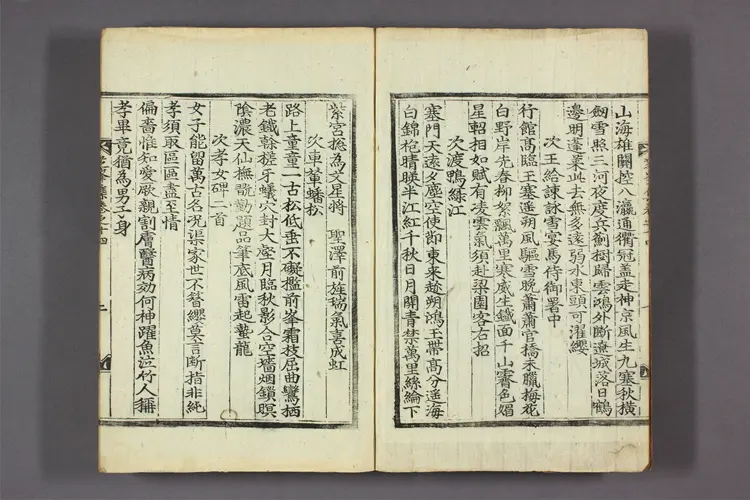 山海雄關控八瀛通衢冠盖走神京風生九塞秋橫
劒雪照三河夜度兵薊樹歸雲鴻外斷遼城落日鶴
邊明蓬萊此去無多遠弱水東頭可濯纓
次王給諫詠雪宴馬侍御署中
行館高臨王塞遥朔風驅雪晚蕭蕭官橋未臘梅花
白野岸先春柳絮飄萬里寒威生鐵面千山霽色媚
星軺相如賦有凌雲氣須赴梁園客右招
次渡鴨綠江
塞門天遠夕塵空使節東來趁朔鴻玉帶高分遥海
白錦袍晴睒半江紅千秋日月開青禁萬里絲綸下
紫宮捴為文星將 聖澤前旌瑞氣喜成虹
次車輦蟠松
路上童童一古松低垂不礙檻前峯霜枝屈曲鸞栖
老鐵榦搓牙蟻穴封大壑月臨秋影合空墻烟鎖暝
陰濃天仙撫翫勤題品筆底風雷起蟄龍
次孝女碑二首
女子能留萬古名况渠家世不簪纓莫言斷指非純
孝須取區區盡至情
偏嗇惟知愛厥親割膚醫病効何神躍魚泣竹人稱
孝畢竟猶為男子身